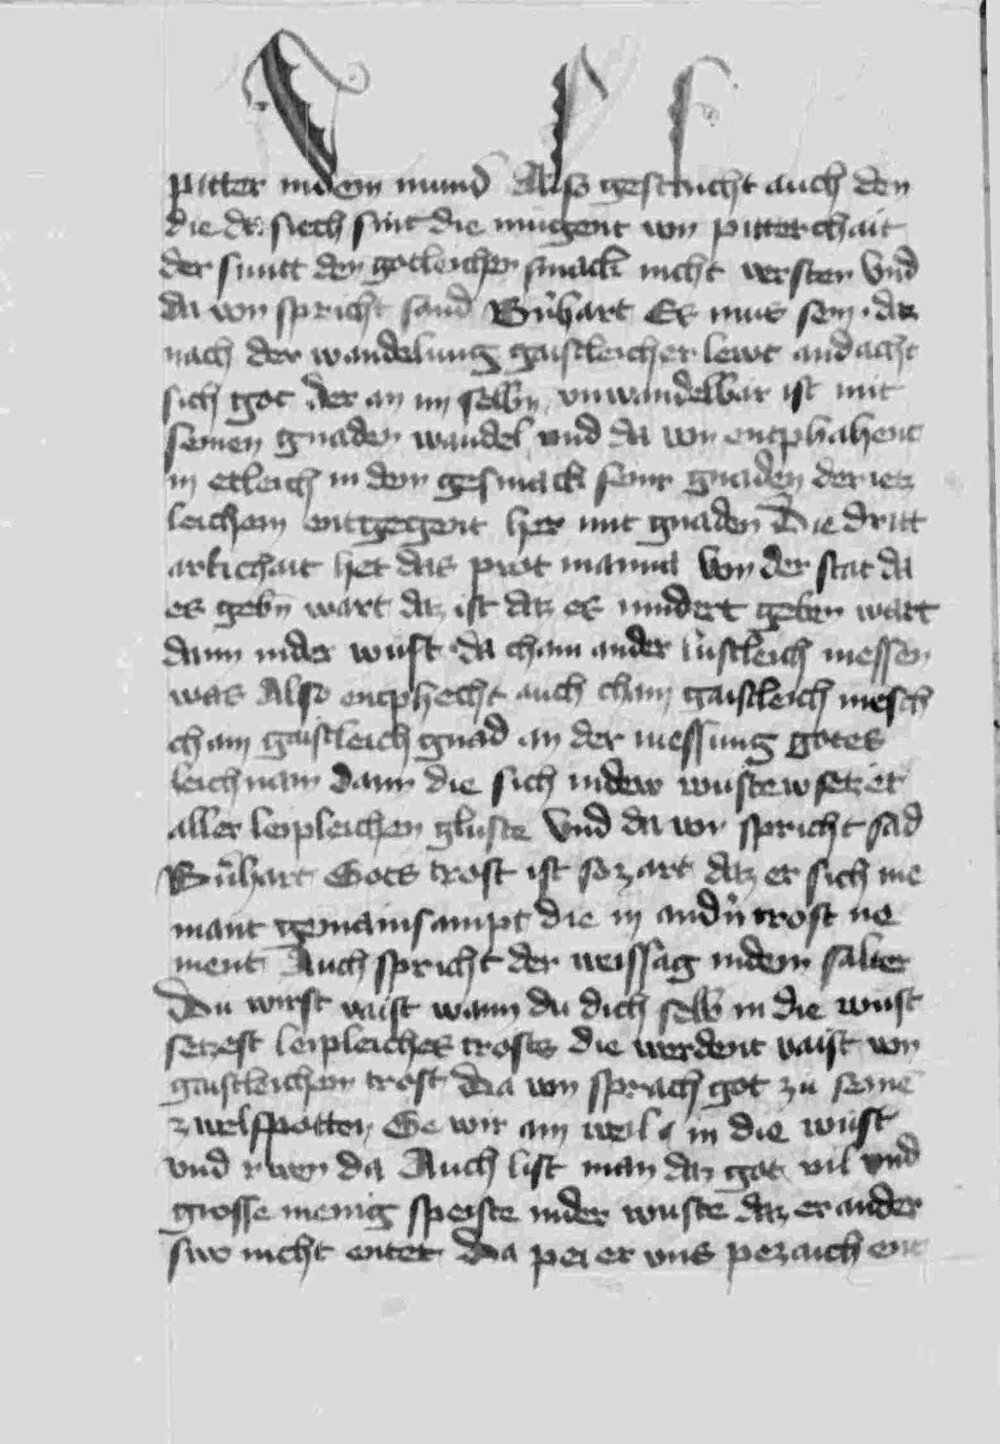 pitter in dem mund Also geschicht auch den
die da siech sint die mugent von pitterchait
der sunt den gotleichen smack nicht versten Vnd
da von spricht sand Bnhart Es mus sein daz
nach der wandelung gaistleicher lewt andacht
sich got der an im selbn vnwandelbar ist mit
seinen gnaden wandel vnd da von enphahent
in etleich in dem gesmack seinr gnaden der ietz
leichem entgegent her mit gnaden Die dritt
artichait het das prot manna Von der stat da
es gebn wart daz ist daz es nindert geben wart
dann in der wuͤst da chain ander lustleich nessen
was Also enphecht auch chain gaistleich mesch
chain gaistleich gnad an der nessung gotes
leichnam dann die sich in dew wustew setzet
aller leipleichen gluste Vnd da von spricht sad
Bnhart Gots trost ist so zart daz er sich nie
mant gemainsampt die in andn trost ne
ment Auch spricht der weissag in dem salter
Du wirst vaist wann du dich selb in die wuͤst
setzest leipleiches trosts die werdent vaist von
gaistleichem trost Da von sprach got zu seine
zwelfpotten Ge wir ain weil in die wuͤst
vnd rwen da Auch list man daz got vil vnd
grosse menig speiste in der wuste daz er ander
swo nicht entet Da pei er vns pezaichent